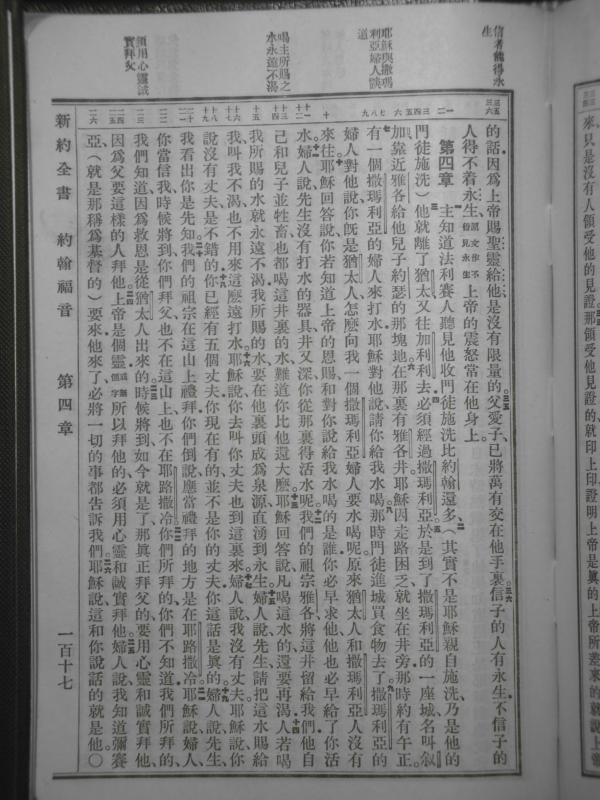 信者能得永生
耶穌與撒瑪利亞婦人談道
喝主所賜之水永遠不渴
須用心靈誠實拜父
來只是沒有人領受他的見證那領受他見證的就印上印證明上帝是眞的上帝所差來的就說上帝
的話因爲上帝賜聖靈給他是沒有限量的父愛子已將萬有交在他手裏信子的人有永生不信子的
人得不着永生原文作不得見永生上帝的震怒常在他身上
第四章 主知道法利賽人聽見他收門徒施洗比約翰還多(其實不是耶穌親自施洗乃是他的
門徒施洗)他就離了猶太又往加利利去必須經過撒瑪利亞於是到了撒瑪利亞的一座城名叫叙
加靠近雅各給他兒子約瑟的那塊地在那裏有雅各井耶穌因走路困乏就坐在井旁那時約有午正
有一個撒瑪利亞的婦人來打水耶穌對他說請你給我水喝那時門徒進城買食物去了撒瑪利亞的
婦人對他說你旣是猶太人怎麽向我一個撒瑪利亞婦人要水喝呢原來猶太人和撒瑪利亞人沒有
來往耶穌回答說你若知道上帝的恩賜和對你說給我水喝的是誰你必早求他他也必早給了你活
水婦人說先生沒有打水的器具井又深你從那裏得活水呢我們的祖宗雅各將這井留給我們他自
己和兒子並牲畜也都喝這井裏的水難道你比他還大麽耶穌回答說凡喝這水的還要再渴人若喝
我所賜的水就永遠不渴我所賜的水要在他裏頭成爲泉源直湧到永生婦人說先生請把這水賜給
我叫我不渴也不用來這麽遠打水耶穌說你去叫你丈夫也到這裏來婦人說我沒有丈夫耶穌說你
說沒有丈夫是不錯的你已經有五個丈夫你現在有的並不是你的丈夫你這話是眞的婦人說先生
我看出你是先知我們的祖宗在這山上禮拜你們倒說應當禮拜的地方是在耶路撒冷耶穌說婦人
你當信我時候將到你們拜父也不在這山上也不在耶路撒冷你們所拜的你們不知道我們所拜的
我們知道因爲救恩是從猶太人出來的時候將到如今就是了那眞正拜父的要用心靈和誠實拜他
因爲父要這樣的人拜他上帝是個靈或無個字所以拜他的必須用心靈和誠實拜他婦人說我知道彌賽
亞(就是那稱爲基督的)要來他來了必將一切的事都告訴我們耶穌說這和你說話的就是他〇
新約全書 約翰福音 第四章 一百十七